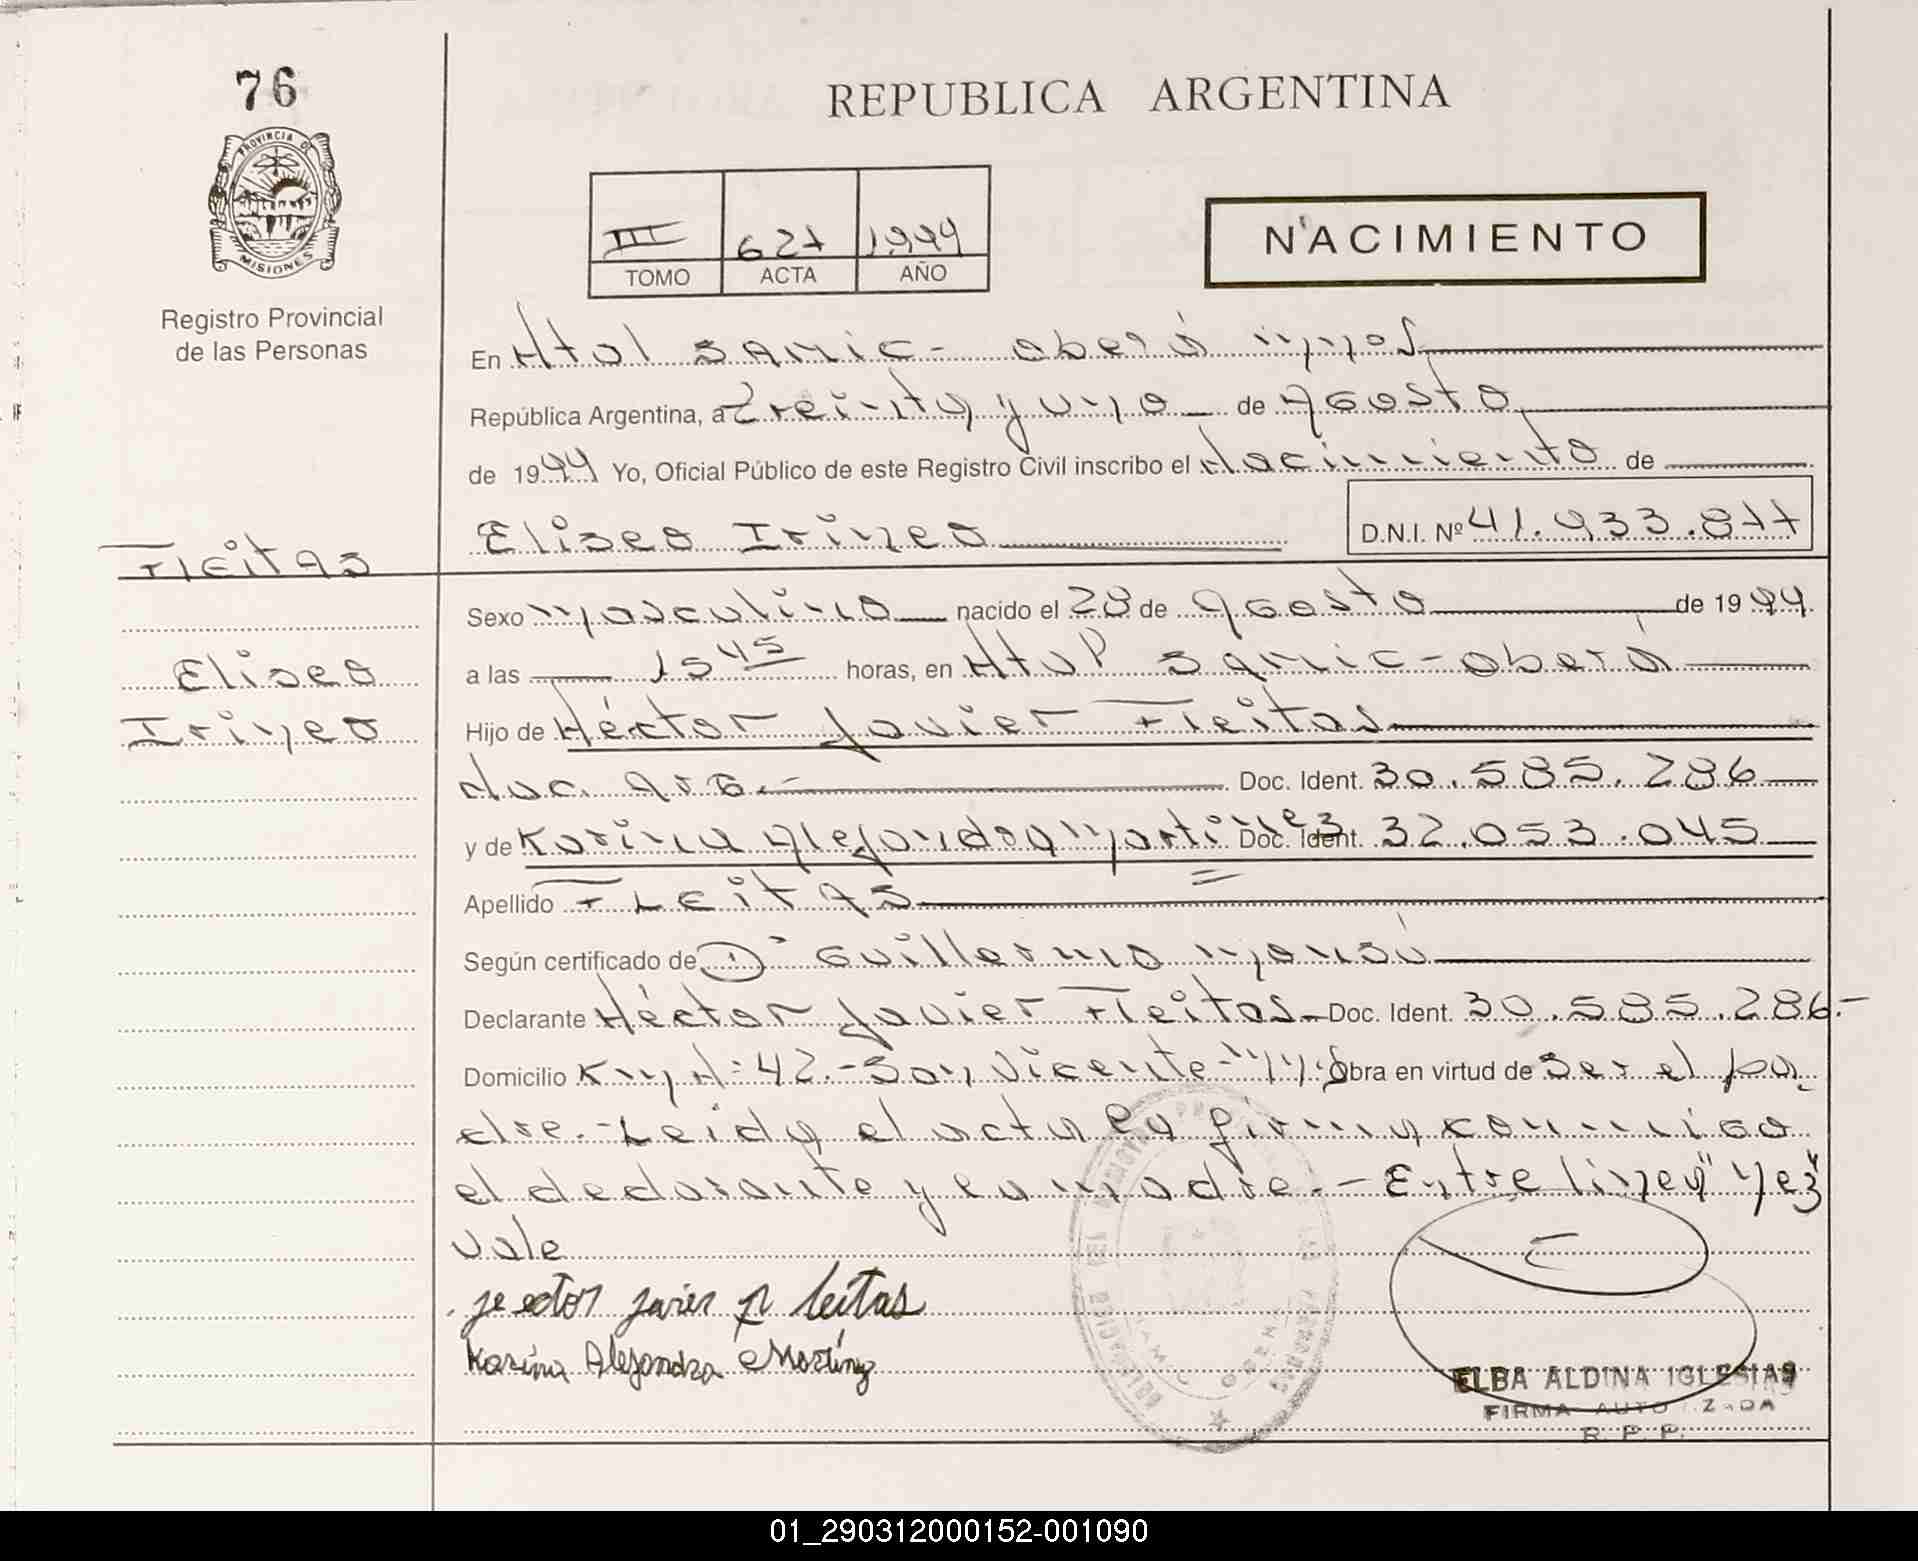 76
REPUBLICA ARGENTINA
PROVINCIA DE
MISIONES
Registro Provincial
de las Personas
III 627 1999
TOMO ACTA AÑO
NACIMIENTO
En Htal Samic - oberá Mnes
República Argentina, a Treinta y uno de Agosto
de 1999 Yo, Oficial Público de este Registro Civil inscribo el Nacimiento de
Eliseo Irineo D.N.I. Nº 41.933.877
Fleitas
Sexo Masculino nacido el 28 de Agosto de 1999.
Eliseo
a las 15 45 horas, en Htal Samic - oberá
Irineo
Hijo de Héctor Javier Fleitas
Nac. Arg. Doc. Ident. 30.585.286
y de Karina Alejandra Martinez Doc. Ident. 32.053.045
Apellido FLEitAs
Según certificado de Dr Guillermo
Declarante Héctor Javier Fleitas Doc. Ident. 30.585.286.-
Domicilio Km Nº 42.- San Vicente - Mnes Obra en virtud de Ser el pa
dre.- Leida el acta la firman conmigo
el declarante y la madre.- Entre linea "nez"
Vale
jeector javier fleitas
Karina Alejandra Martinez
ELBA ALDINA IGLESIAS
FIRMA AUTORIZADA
R. P. P.
01_290312000152-001090